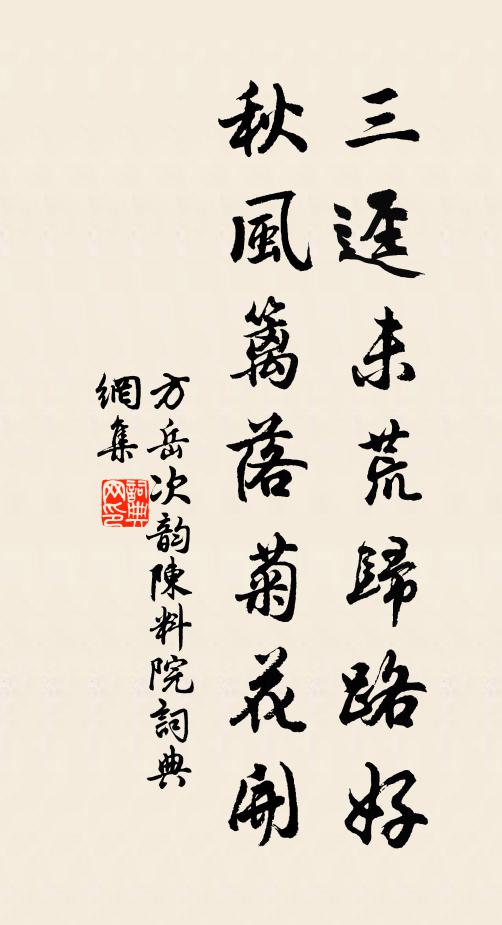 三逕未荒歸路好
秋風籬落菊花開
方岳次韵陳料院詞典
網集
詞典
网印